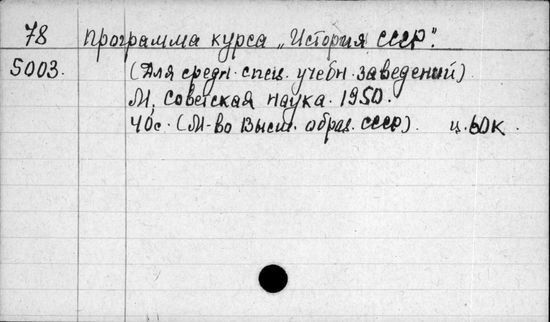 78 Программа курса „История СССР".
5003. (Для средн. спец. учебн. заведений)
М, Советская наука. 1950.
40с. (М-во Высш. образ. СССР). ц. 60к.